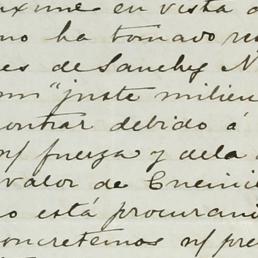 uxime en vista d
no ha tomado re
es de Sanchez N
un "juste milieu
contrar debido á
n/ fuerza y de la
valor de
o está procuran
concretemos n/ pre